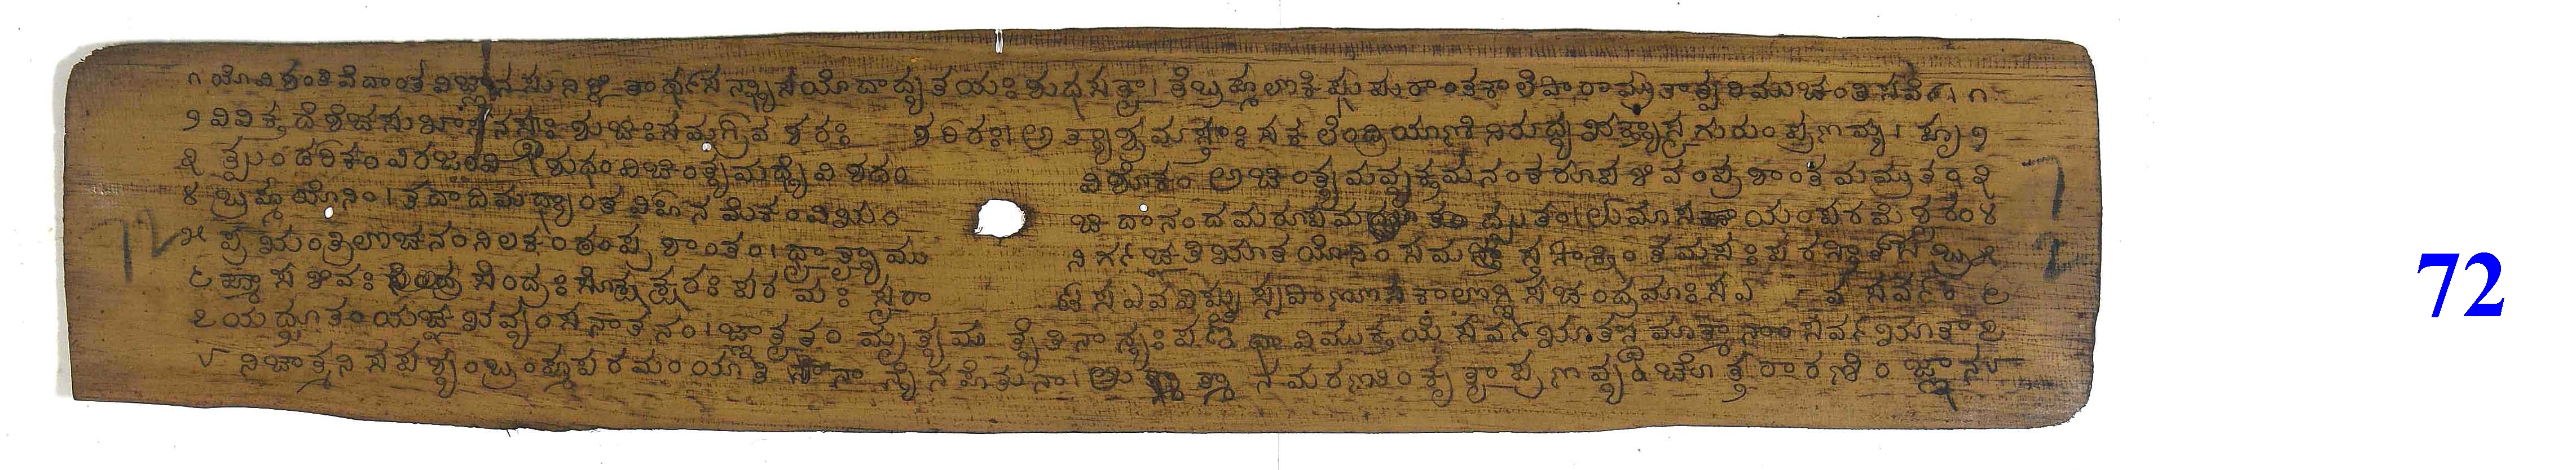 ೧ ಯೊವಿಶಂತಿವೆದಾಂತವಿಜ್ಞಾನಸುನಿಶ್ಚಿತಾರ್ಥಸನ್ನ್ಯಾಸಯೊದಾದ್ಯತಯಃಶುಧಸತ್ವಾ। ತೆಬ್ರಹ್ಮಲೊಕೆಷುಪುರಾಂತಕಾಲೆಪಾರಾಮ್ರುತಾತ್ಪರಿಮುಚಂತಿಸರ್ವೆ। ೧
೨ ವಿವಿಕ್ತದೆಶೆಚಸುಖಾಸನಸ್ತಃಶುಚಿಃಸಮಗ್ರಿವಶಿರಃ ಶರಿರಃ। ಅತ್ಯಾಶ್ರಮಸ್ತಾಃಸಕಲೆಂದ್ರಿಯಾಣಿನಿರುದ್ಯಭಕ್ತ್ಯಾಸ್ವಗುರುಂಪ್ರಣಮ್ಯ। ಹೃ೨
೩ ತ್ಪುಂಡರಿಕಂವಿರಜಂವಿಶುಧಂವಿಚಿಂತ್ಯಮಧ್ಯೆವಿಶದಂ ವಿಶೊಕಂ ಅಚಿಂತ್ಯಮವ್ಯಕ್ತಮನಂತರೂಪಶಿವಂಪ್ರಶಾಂತಮಮ್ರುತಂ೩
೪ ಬ್ರಹ್ಮಯೊನಿಂ। ತದಾದಿಮಧ್ಯಾಂತವಿಹಿನಮೆಕಂವಿಭುಂ ಚಿದಾನಂದಮರೂಪಮದ್ಭುತಂ।ಉಮಾಸಹಾಯಂಪರಮೆಶ್ವರಂ೪
೫ ಪ್ರಭುಂತ್ರಿಲೊಚನಂನಿಲಕಂಠಂಪ್ರಶಾಂತಂ। ಧ್ಯಾತ್ವಾಮು ನಿರ್ಗಚ್ಛತಿಭೂತಯೊನಿಂಸಮಸ್ತಸಾಕ್ಷಿಂತಮಸಃಪರಸ್ತಾತ್ಸಬ್ರ೫
೬ ಹ್ಮಾಸಶಿವಃಸೆಂದ್ರಃಸೊಕ್ಷರಃಪರಮಃ ಸ್ವರಾ ಟ್ಸಏವವಿಷ್ಣುಸ್ಸಪ್ರಾಣಸಕಾಲೊಗ್ನಿಸಚಂದ್ರಮಾಃಸಏ ವಸರ್ವಂ ೬
೭ ಯದ್ಭೂತಂಯಚ್ಚಭವ್ಯಂಸನಾತನಂ। ಜ್ಞಾತ್ವಾತಂಮೃತ್ಯುಮತ್ಯೆತಿನಾನ್ಯಃಪಂಥಾವಿಮುಕ್ತಯೆಸರ್ವಭೂತಸ್ತಮಾತ್ಮಾನಂಸರ್ವಭೂತಾ೭
೮ ನಿಚಾತ್ಮನಿಸಪಶ್ಯಂಬ್ರಂಹ್ಮಪರಮಂಯಾತಿನಾನ್ಯೆನಹೆತುನಾ। ಆತ್ಮಾನಮರಣಿಂಕೃತ್ವಾಪ್ರಣವಂಚೊತ್ತರಾರಣಿಂಜ್ಞಾನ೮
72
72